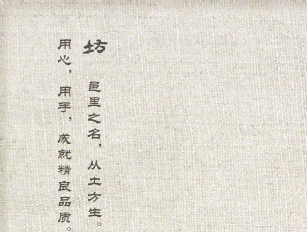 坊
邑里之名，从土方生。
用心，用手，成就精良品质。